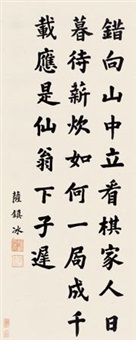 錯向山中立看棋家人日
暮待薪炊如何一局成千
載應是仙翁下子遲
薩鎮冰